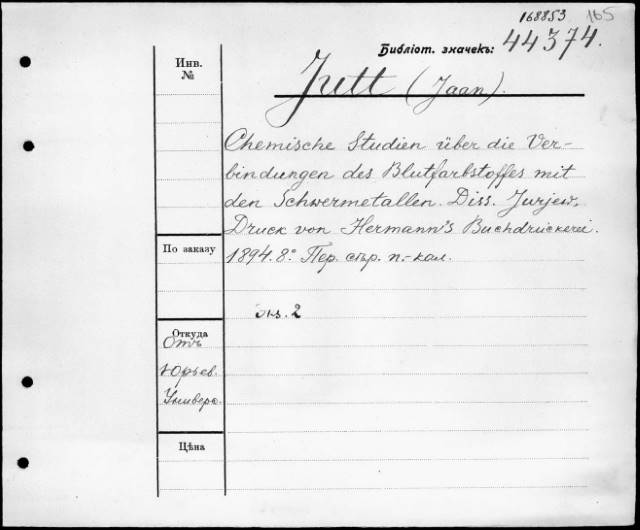 168853 165
Библіот. значекъ: 44374.
Инв.
№
Jutt (Jaan).
Chemische Studien über die Ver-
bindungen des Blutfarbstoffes mit
den Schwermetallen. Diss. Jurjew,
Druck von Hermann's Buchdruckerei.
1894. 8° Пер. стр. п.-кал.
По заказу
экз. 2
Откуда
Отъ
Юрьев.
Универс.
Цѣна